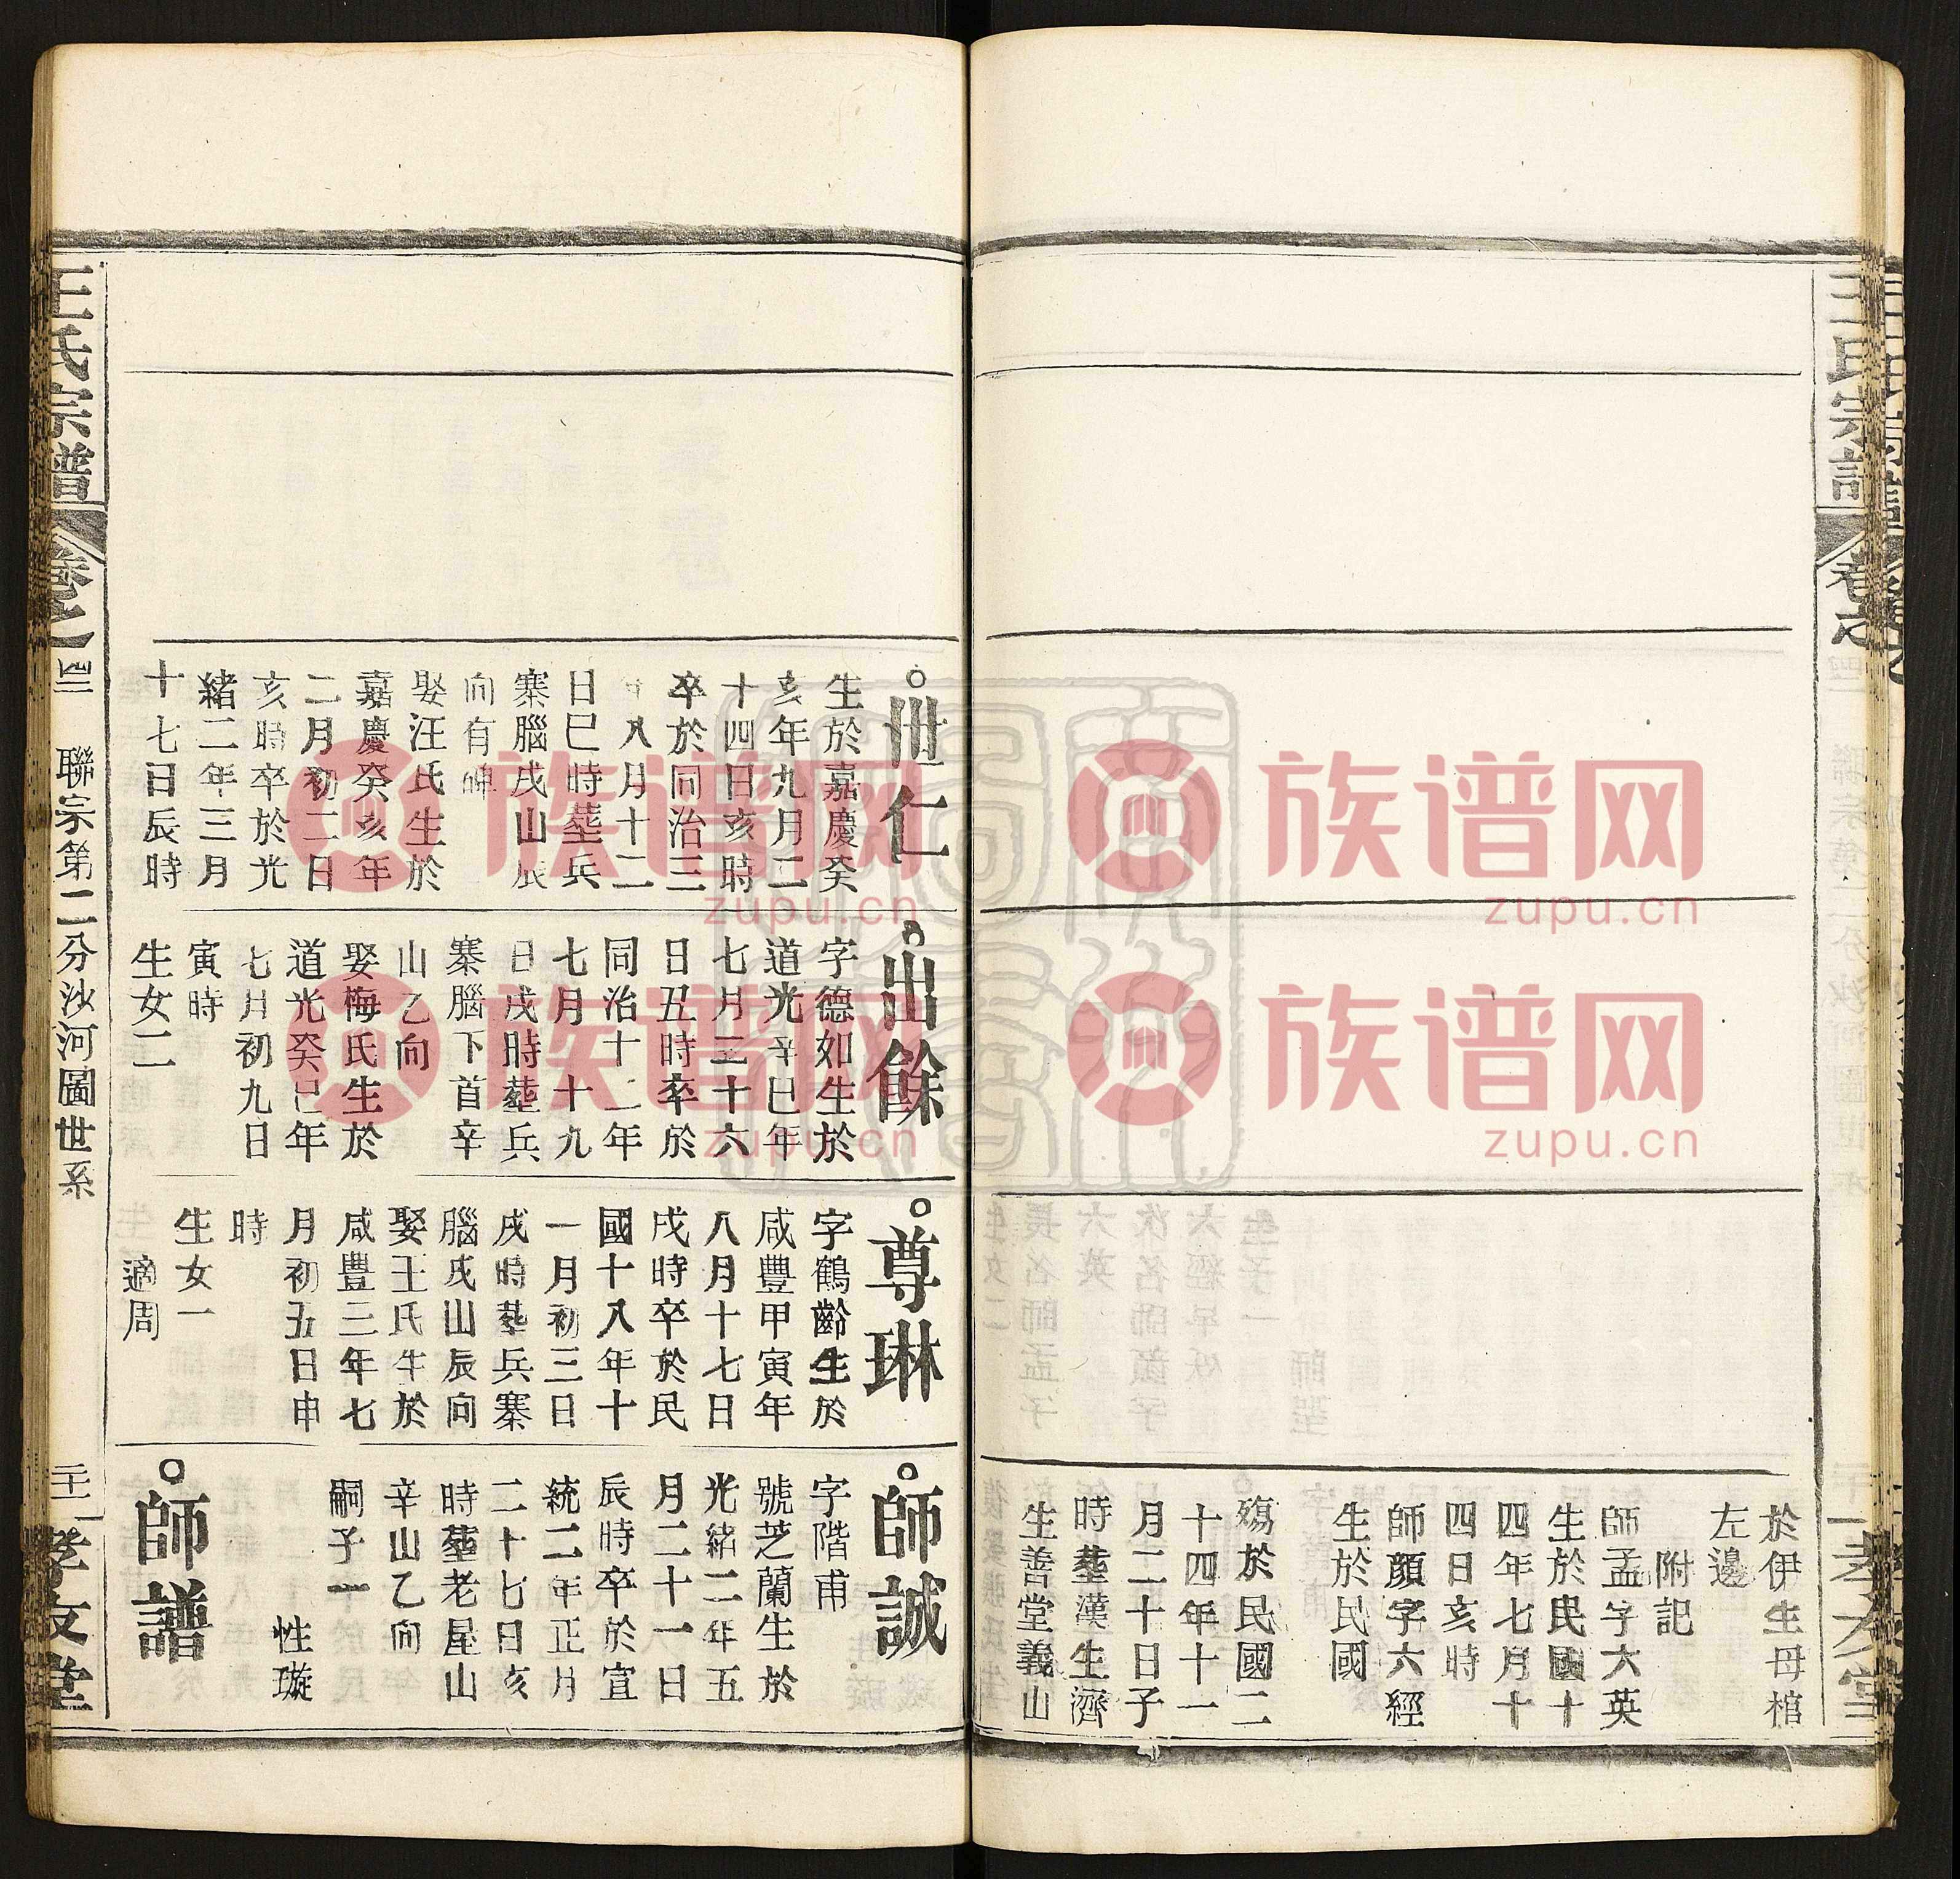 於伊生母棺
左邊
附記
師孟字六英
生於民國十
四年七月十
四日亥時
師顔字六經
生於民國
殤於民國二
十四年十一
月二十日子
時塟漢生濟
生善堂義山
世仁
生於嘉慶癸
亥年九月二
十四日亥時
卒於同治三
年八月十二
日巳時塟兵
寨腦戌山辰
向有碑
娶汪氏生於
嘉慶癸亥年
二月初二日
亥時卒於光
緒二年三月
十七日辰時
出餘
字德如生於
道光辛巳年
七月二十六
日丑時卒於
同治十二年
七月二十九
日戌時塟兵
寨腦下首辛
山乙向
娶梅氏生於
道光癸巳年
七月初九日
寅時
生女二
尊琳
字鶴齡生於
咸豐甲寅年
八月十七日
戌時卒於民
國十八年十
一月初三日
戌時塟兵寨
腦戌山辰向
娶王氏生於
咸豐三年七
月初五日申
時
生女一
適周
師誠
字階甫
號芝蘭生於
光緒二年五
月二十一日
辰時卒於宣
統二年正月
二十七日亥
時塟老屋山
辛山乙向
嗣子一
性璇
師譜
王氏宗譜
卷之
聯宗第二分沙河圖世系
二十一
孝友堂
王氏宗譜
卷之
孝友堂
族谱网
zupu.cn
族谱网
zupu.cn
族谱网
zupu.cn
族谱网
zupu.cn